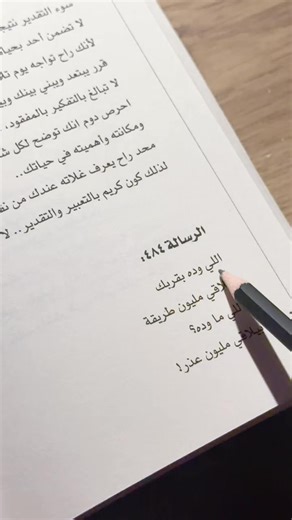 سوء التقدير
لا تضمن أحد
لأنك راح تواجه يوم
قرر يبتعد ويبني بينك
لا تبالغ بالتفكير بالمفقود
احرص دوم انك توضح لكل
ومكانته وأهميته في حياتك..
محد راح يعرف غلاته عندك من
لذلك كون كريم بالتعبير والتقدير.. لا
الرسالة ٤٨٤:
اللي وده بقربك
مليون طريقة
ما وده؟
مليون عذر!